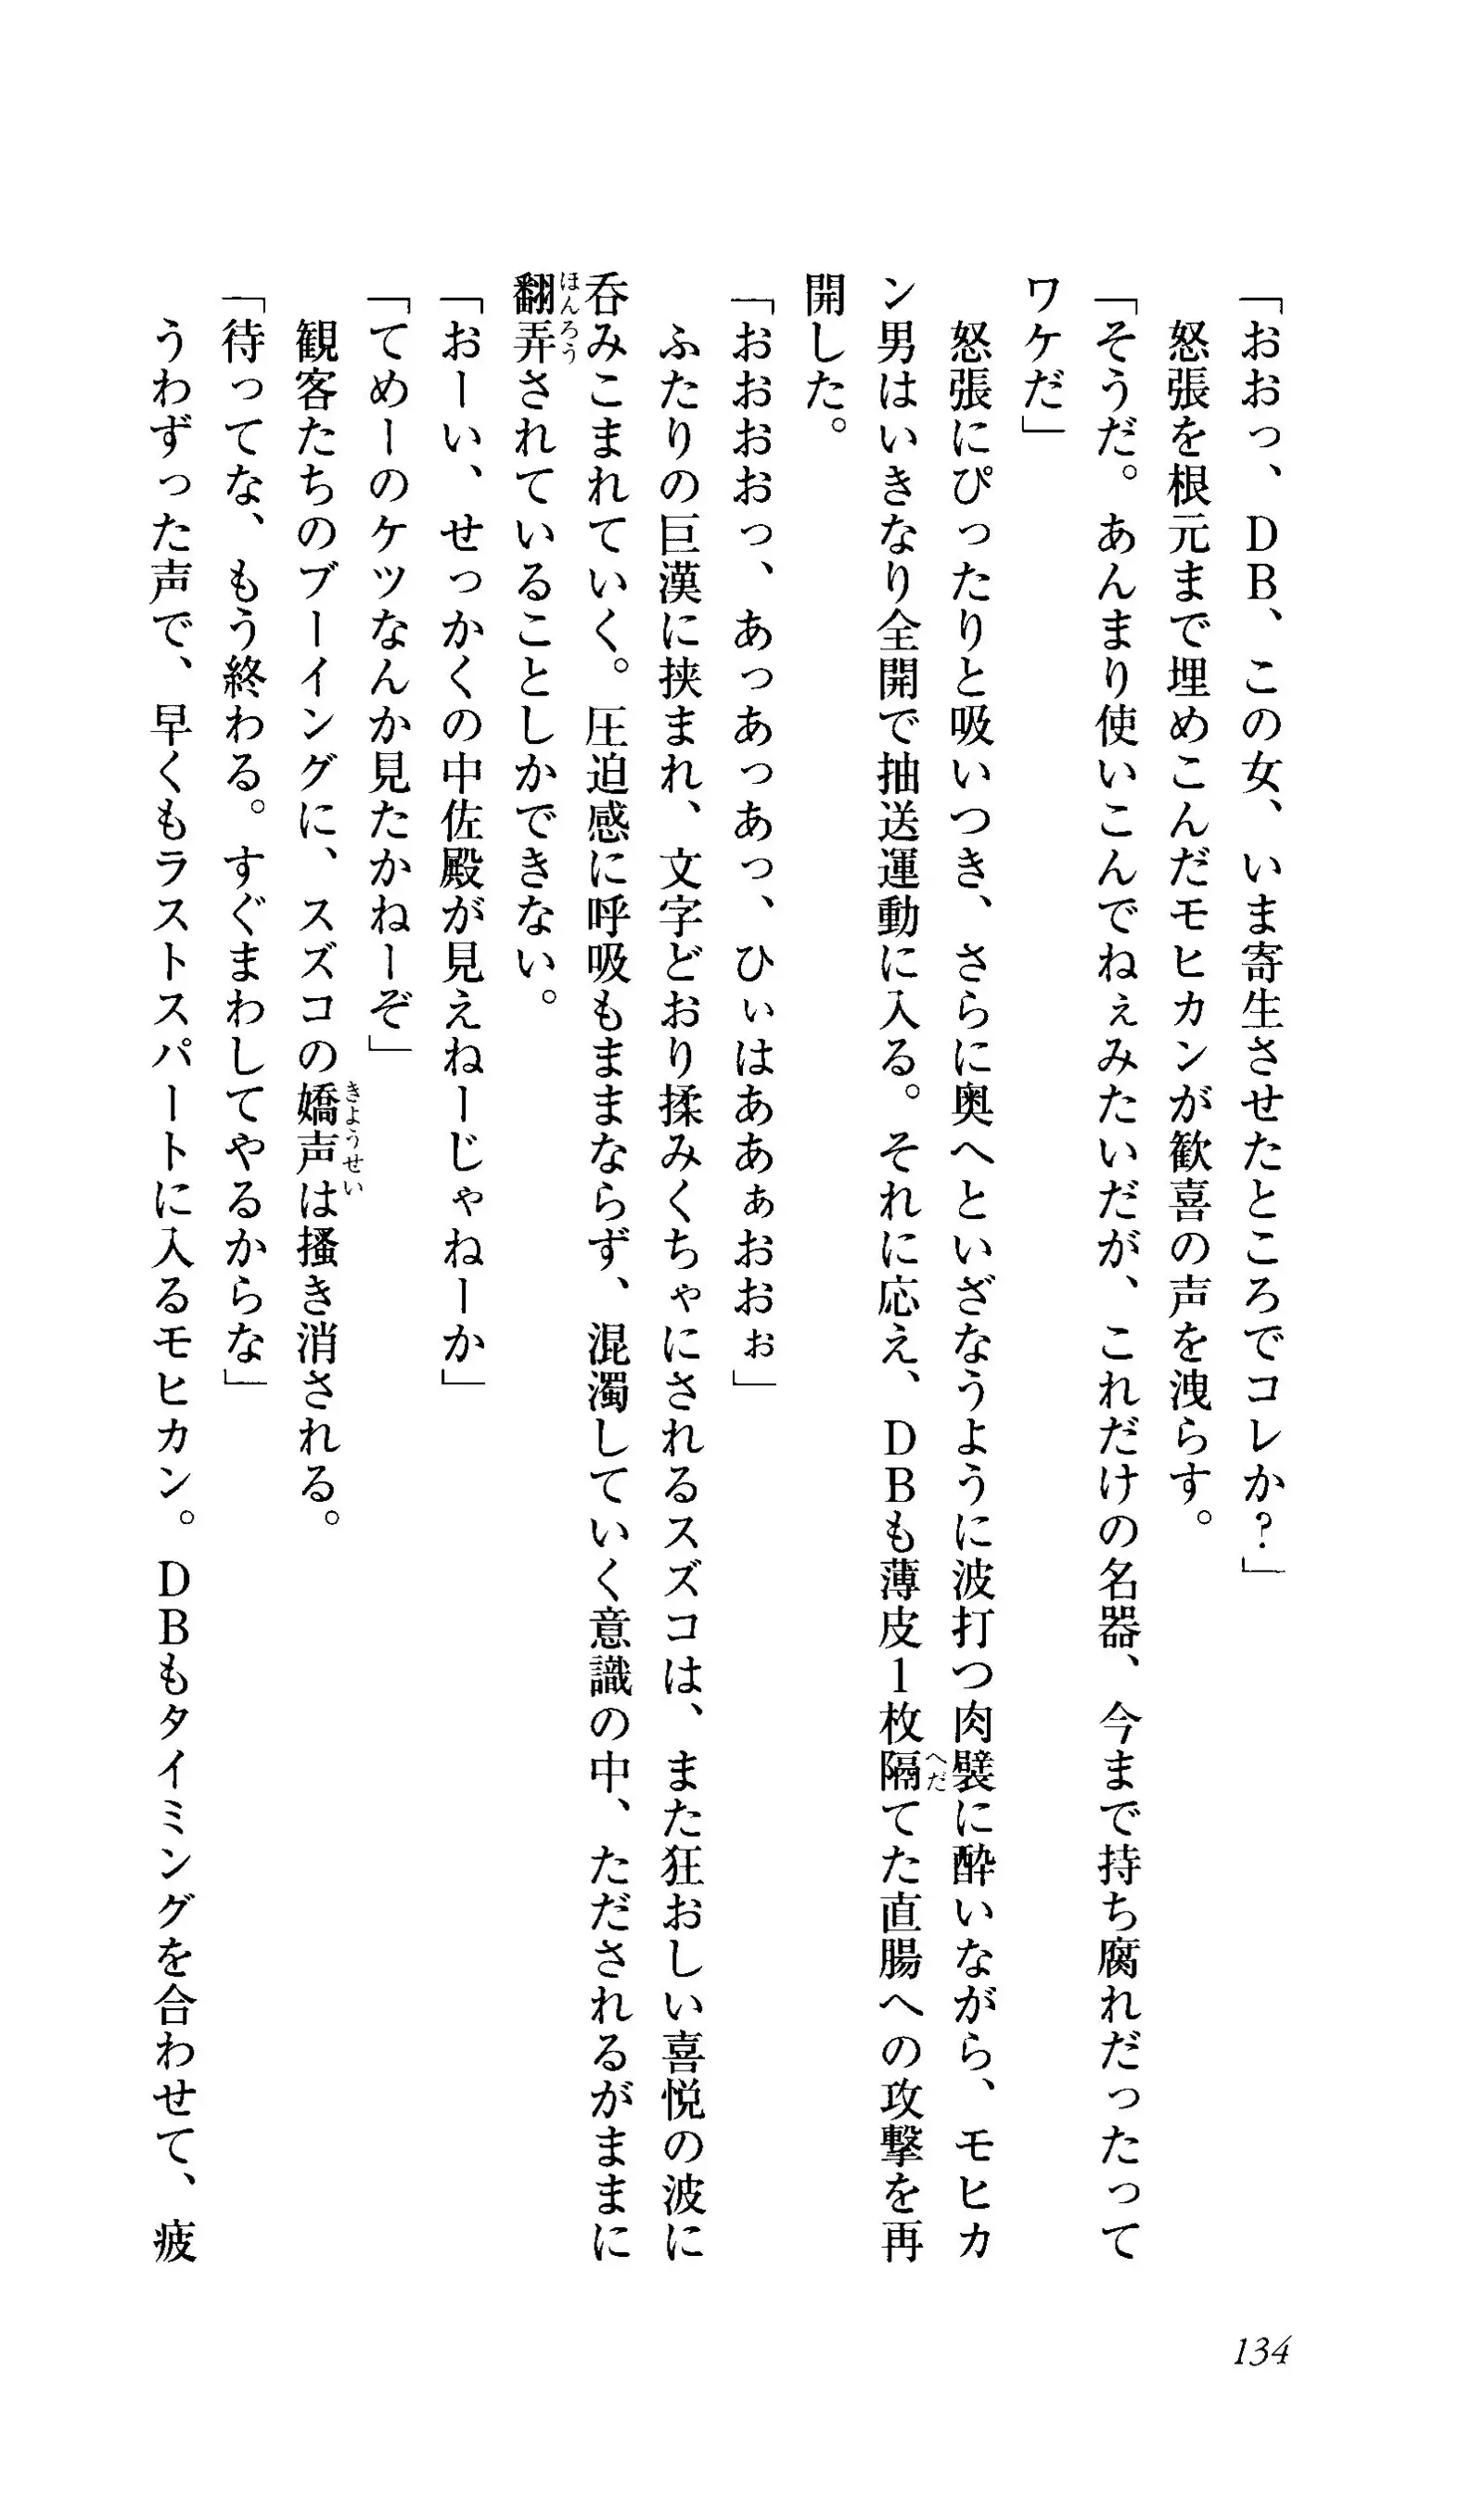 「おおっ、DB、この女、いま寄生させたところでコレか?」
怒張を根元まで埋めこんだモヒカンが歓喜の声を洩らす。
「そうだ。あんまり使いこんでねぇみたいだが、これだけの名器、今まで持ち腐れだったって
ワケだ」
怒張にぴったりと吸いつき、さらに奥へといざなうように波打つ肉襞に酔いながら、モヒカ
ン男はいきなり全開で抽送運動に入る。それに応え、DBも薄皮1枚隔てた直腸への攻撃を再
へだ
開した。
「おおおおっ、あっあっあっ、ひぃはああぁおおぉ」
ふたりの巨漢に挟まれ、文字どおり揉みくちゃにされるスズコは、また狂おしい喜悦の波に
呑みこまれていく。圧迫感に呼吸もままならず、混濁していく意識の中、ただされるがままに
翻弄されていることしかできない。
ほんろう
「おーい、せっかくの中佐殿が見えねーじゃねーか」
「てめーのケツなんか見たかねーぞ」
観客たちのブーイングに、スズコの嬌声は掻き消される。
きようせい
「待ってな、もう終わる。すぐまわしてやるからな」
うわずった声で、早くもラストスパートに入るモヒカン。DBもタイミングを合わせて、疲
134